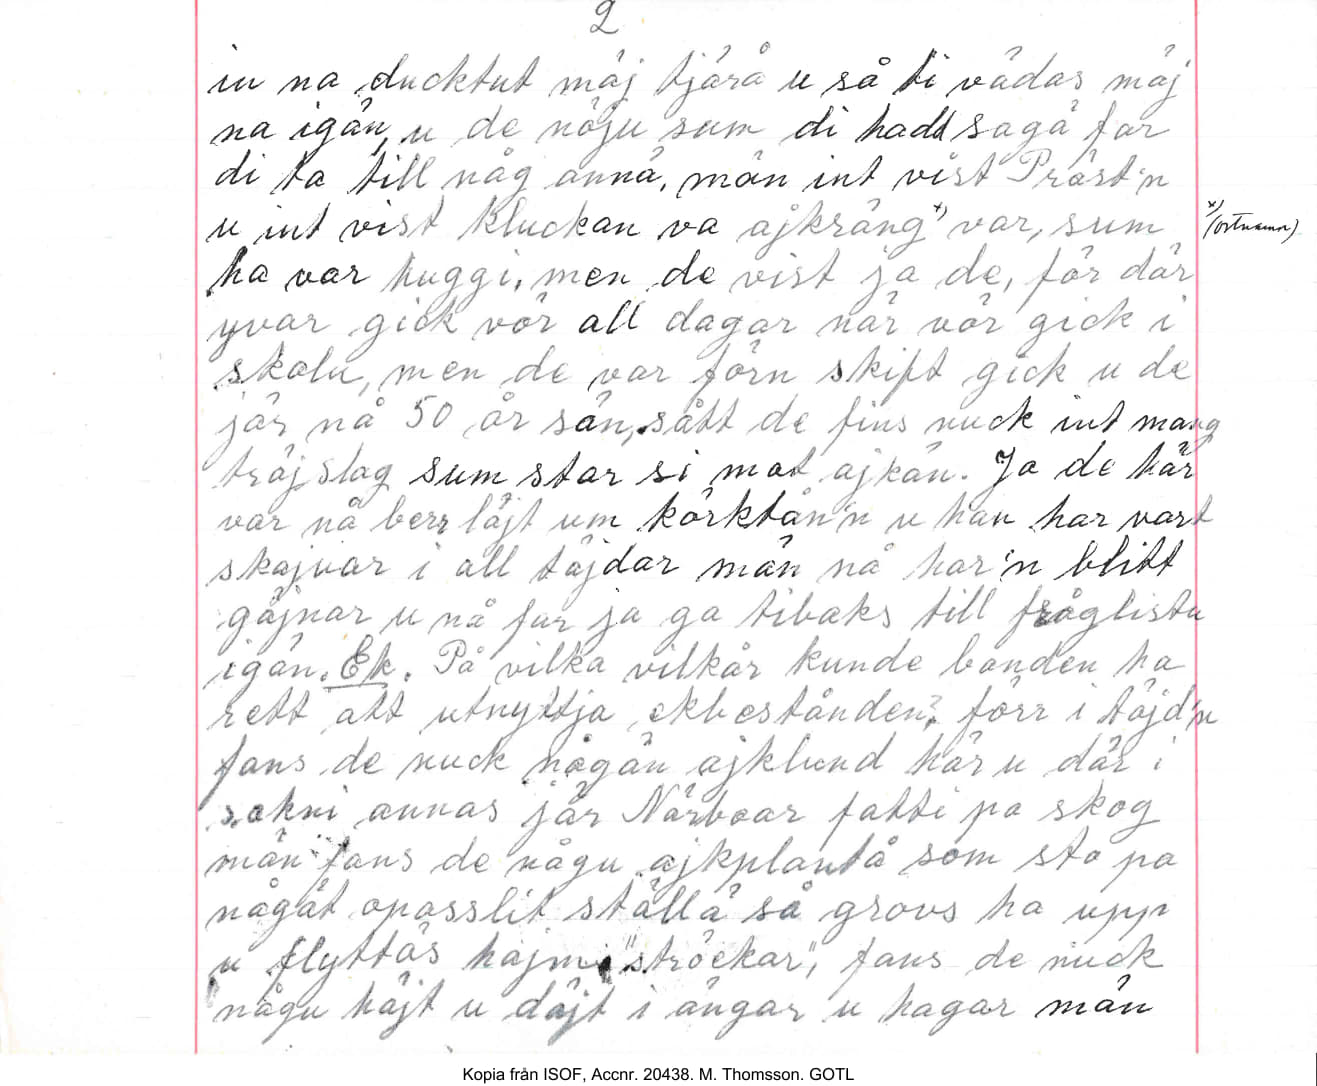 2
in na ducktut mäj tjärå u så ti vädas mäj
na igän, u de nöju sum di hadd sagå far
di ta till någ annå, män int vist Präst'n
u int vist kluckan va ajkräng x) var, sum
x) (ortnamn)
ha var huggi, men de vist ja de, för där
yvar gick vör all dagar när vör gick i
skolu, men de var förn skift gick u de
jär nå 50 år sän, sått de fins nuck int mang
träjslag sum star si mot ajkän. Ja de här
var nå berr läjt um körktån'n u han har vart
skajvar i all täjdar män nå har'n blitt
gäjnar u nå far ja ga tibaks till fråglistu
igän. Ek. På vilka vilkår kunde bonden ha
rett att utnyttja ekbestånden? förr i täjd'n
fans de nuck någån ajklund här u där i
sokni annas jär Närboar fatti pa skog
män fans de någu ajkplantå som sto pa
någåt opasslit ställä så grovs ha upp
u flyttäs hajm i "ströckar", fans de nuck
någu häjt u däjt i ängar u hagar män
Kopia från ISOF, Accnr. 20438. M. Thomsson. GOTL